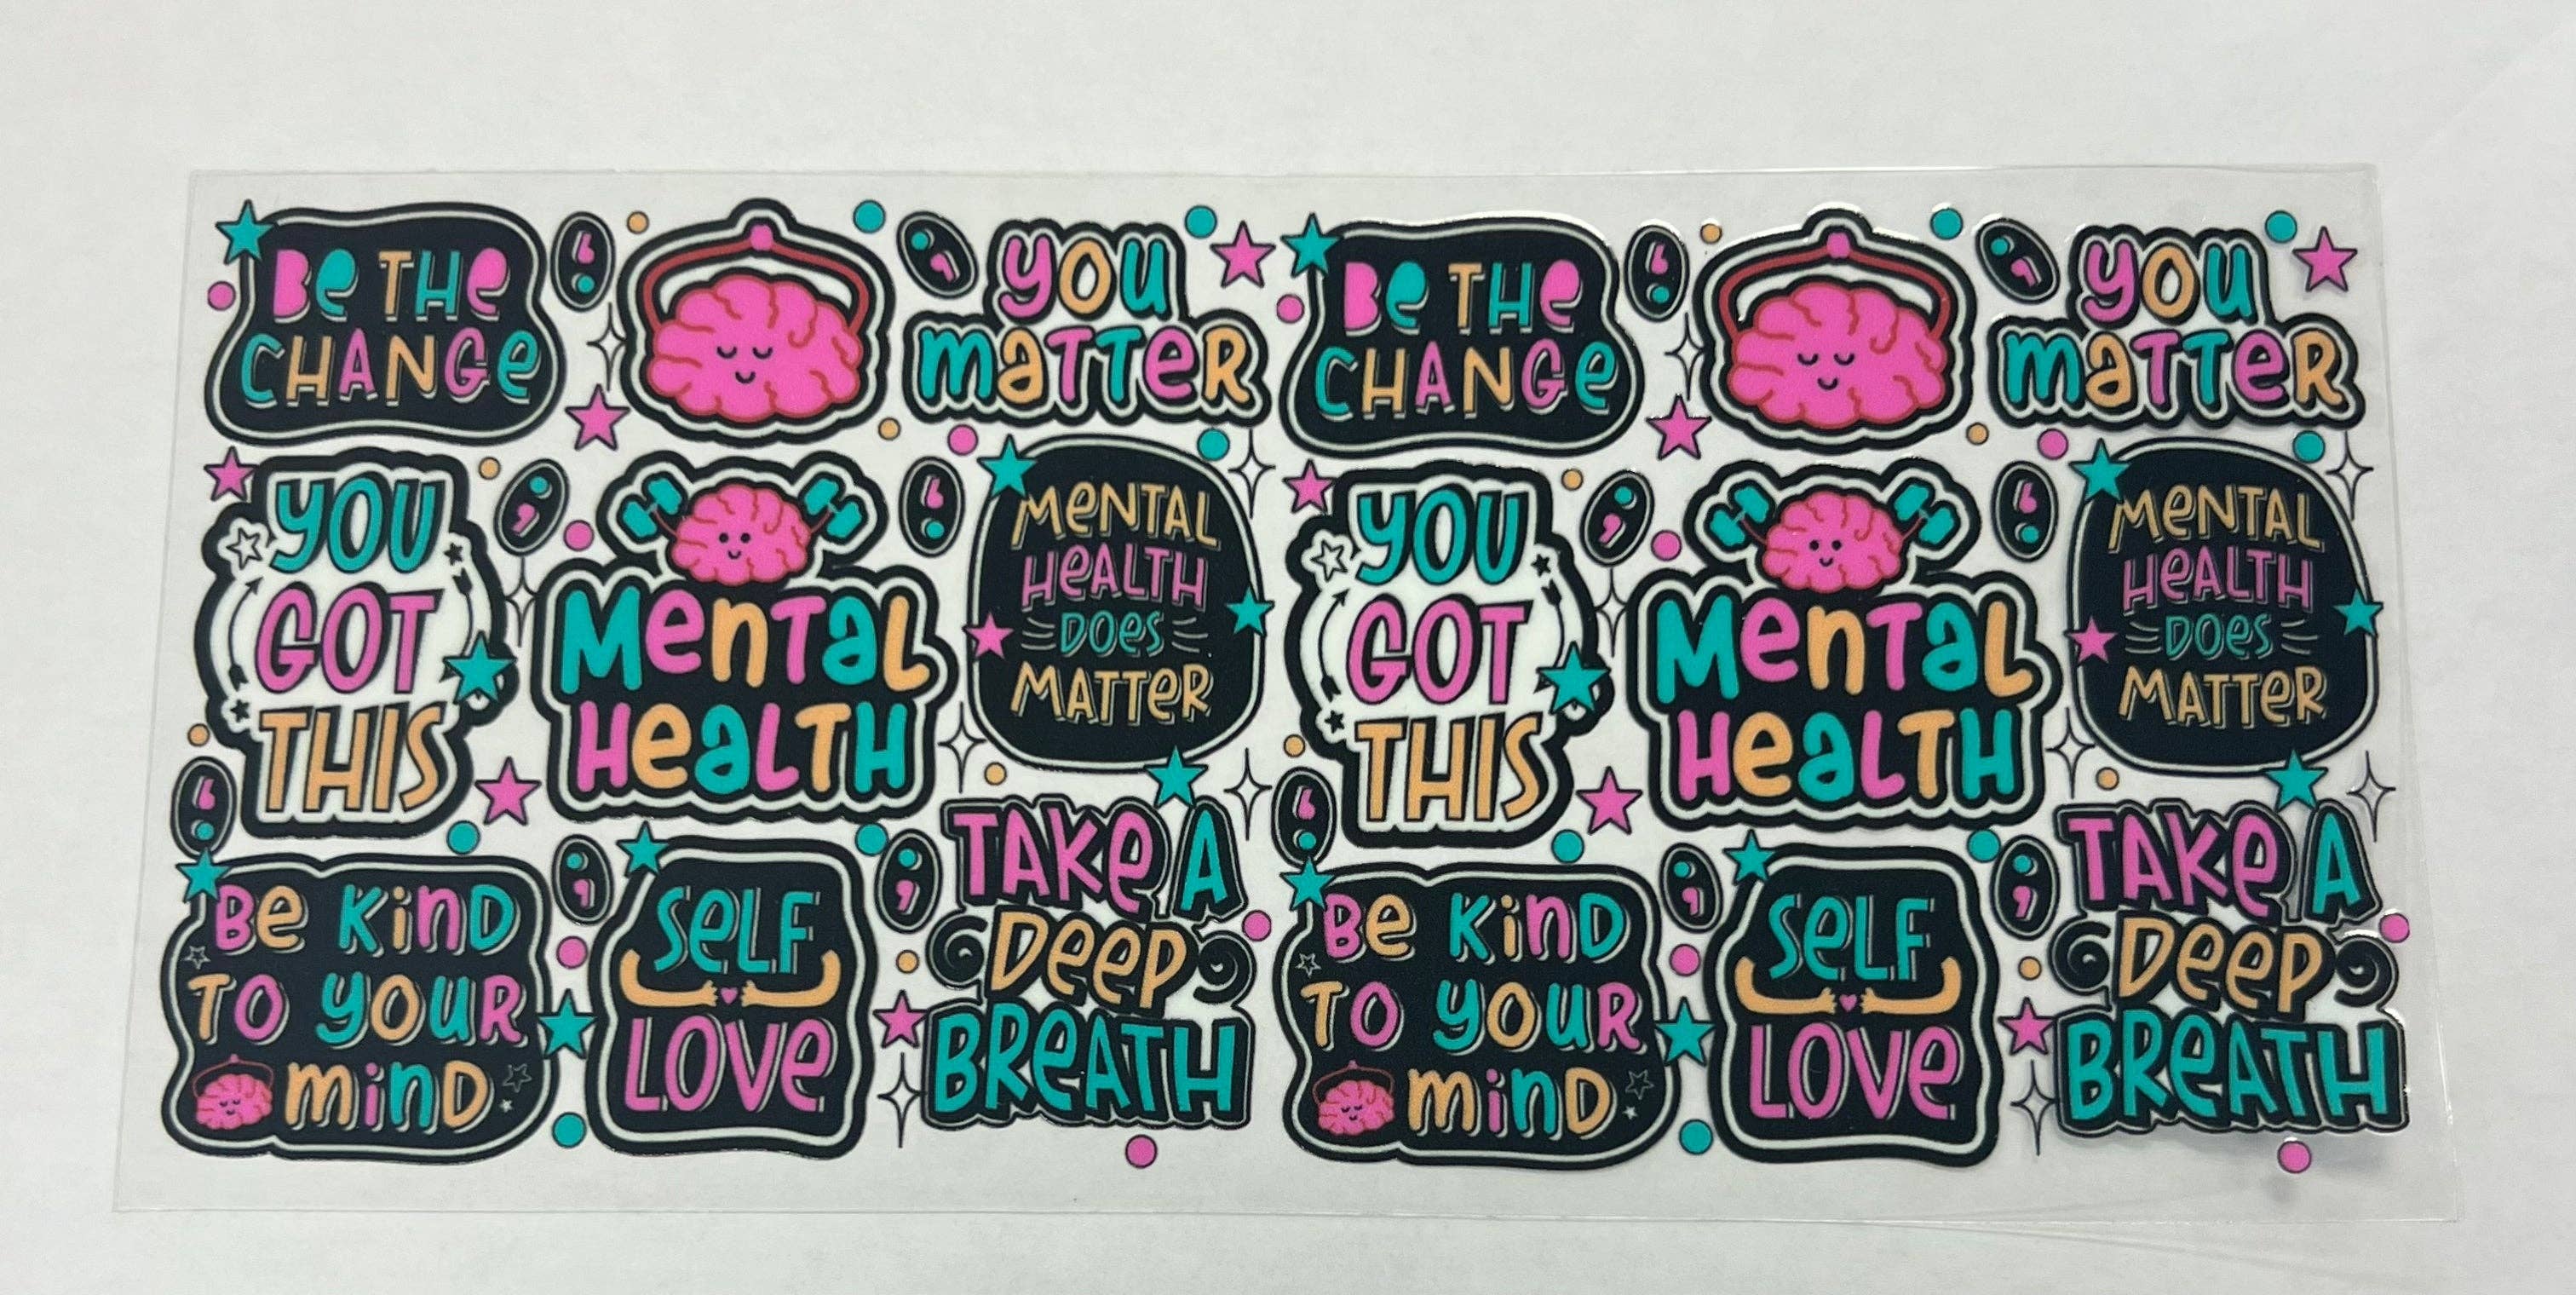 Be THe
CHANGe
;
;
you
maTTeR
Be THe
CHANGe
;
;
you
maTTeR
YOU
GOT
THIS
;
MenTaL
HeaLTH
;
MeNTAL
HeALTH
DOes
MATTeR
YOU
GOT
THIS
;
MenTaL
HeaLTH
;
MeNTAL
HeALTH
DOes
MATTeR
;
Be KinD
TO youR
minD
;
SeLF
LOVe
;
TAKe A
DeeP
BReATH
;
Be KinD
TO youR
minD
;
SeLF
LOVe
;
TAKe A
DeeP
BReATH